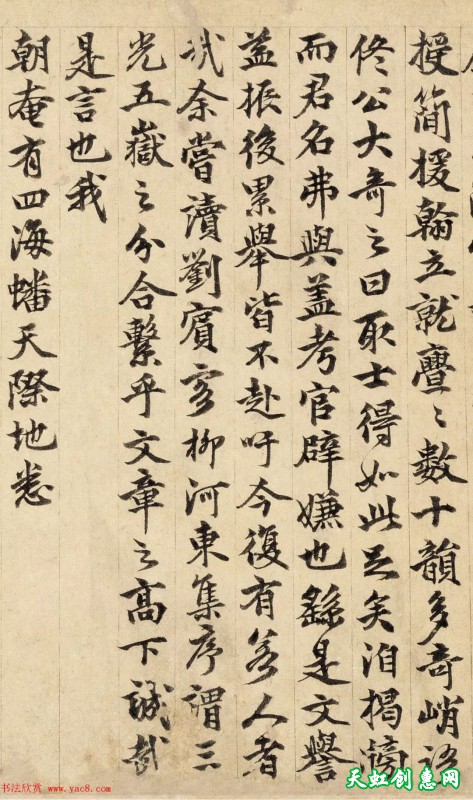 授简援翰立就亹〻數十韻多奇峭語
佟公大奇之曰取士得如此足矣洎揭牓
而君名弗與蓋考官辟嫌也繇是文譽
益振後累舉皆不赴吁今復有若人者
哉余嘗讀劉賓客柳河東集序謂三
光五嶽之分合繫乎文章之高下誠哉
是言也我
朝奄有四海蟠天際地悉
书法欣赏 www.yac8.com
天虹创惠网